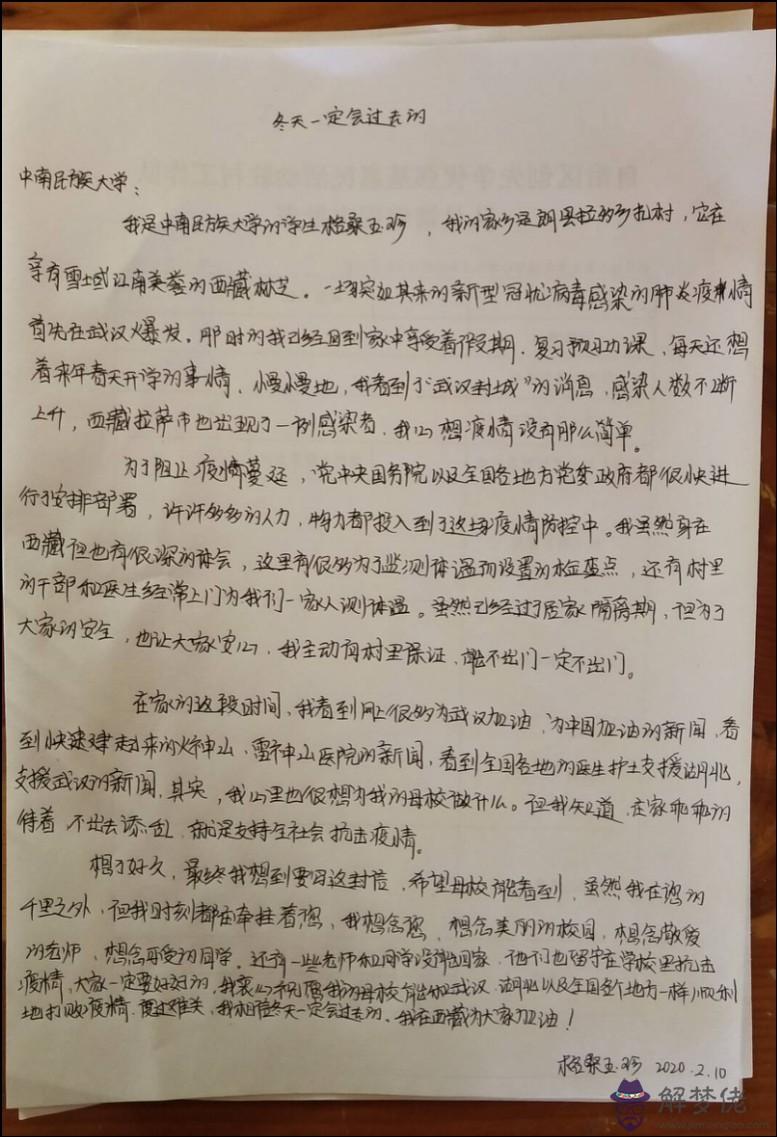 冬天一定会过去的
中南民族大学:
我是中南民族大学的学生格桑玉珍，我的家乡是朗县拉多乡扎村，它在
享有雪域江南美誉的西藏林芝。一场突如其来的新型冠状病毒感染的肺炎疫情
首先在武汉爆发。那时的我已经回到家中享受着假期，复习预习功课，每天还想
着来年春天开学的事情，慢慢地，我看到了"武汉封城"的消息，感染人数不断
上升，西藏拉萨市也出现了一例感染者，我心想疫情没有那么简单。
为了阻止疫情蔓延，党中央国务院以及全国各地方党委政府都很快进
行了安排部署，许许多多的人力，物力都投入到了这场疫情防控中。我虽然身在
西藏但也有很深的体会，这里有很多为了监测体温而设置的检查点，还有村里
的干部和医生经常上门为我们一家人测体温。虽然已经过了居家隔离期，但为了
大家的安全，也让大家安心，我主动向村里保证，能不出门一定不出门。
在家的这段时间，我看到网上很多为武汉加油，为中国加油的新闻，看
到快速建起来的火神山，雷神山医院的新闻，看到全国各地的医生护士支援湖北，
支援武汉的新闻，其实，我心里也很想为我的母校做什么。但我知道，在家乖乖的
待着 不出去添乱，就是支持全社会抗击疫情。
想了好久，最终我想到要写这封信，希望母校能看到，虽然我在您的
千里之外，但我时刻都在牵挂着您，我想念您，想念美丽的校园，想念敬爱
的老师，想念可爱的同学。还有一些老师和同学没能回家，他们也留守在学校里抗击
疫情，大家一定要好好的，我衷心祝愿我的母校能和武汉，湖北以及全国各个地方一样顺利
地打败疫情，度过难关，我相信冬天一定会过去的，我在西藏为大家加油！
格桑玉珍 2020.2.10
解梦佬